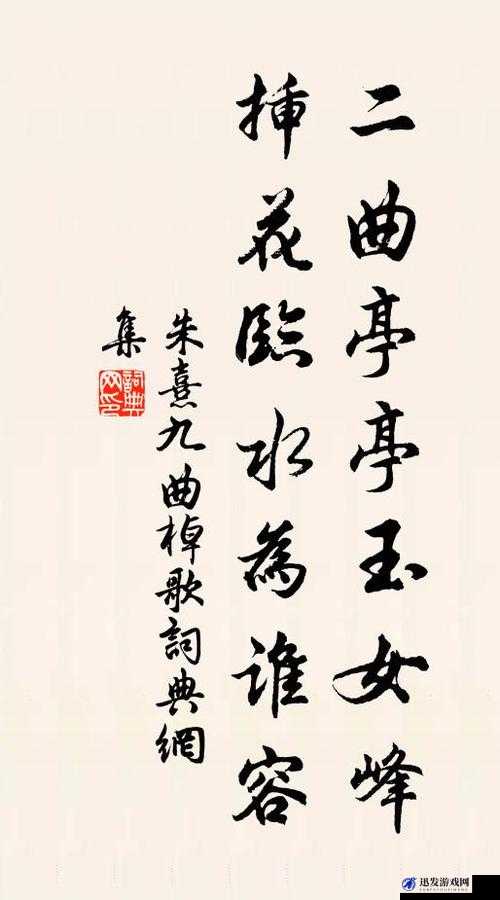 二曲亭亭玉女峰
插花臨水為誰容
朱熹九曲棹歌詞典網
集
詞典網印
迅发游戏网